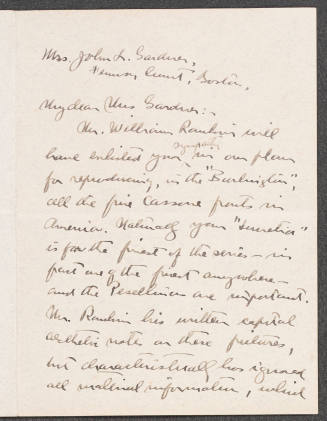 Mrs. John L. Gardner,
Fenway Court, Boston.
My dear Mrs Gardner:-
Mr. William Rankin will
sympathy
have enlisted your in our plan
for reproducing, in the "Burlington",
all the fine Cassone fronts in
America. Naturally your "Lucretia"
is far the finest of the series - in
fact one of the finest anywhere -
and the Pesellinos are important.
Mr. Rankin has written capital
aesthetic notes on these pictures,
but characteristically has ignored
all material information, which